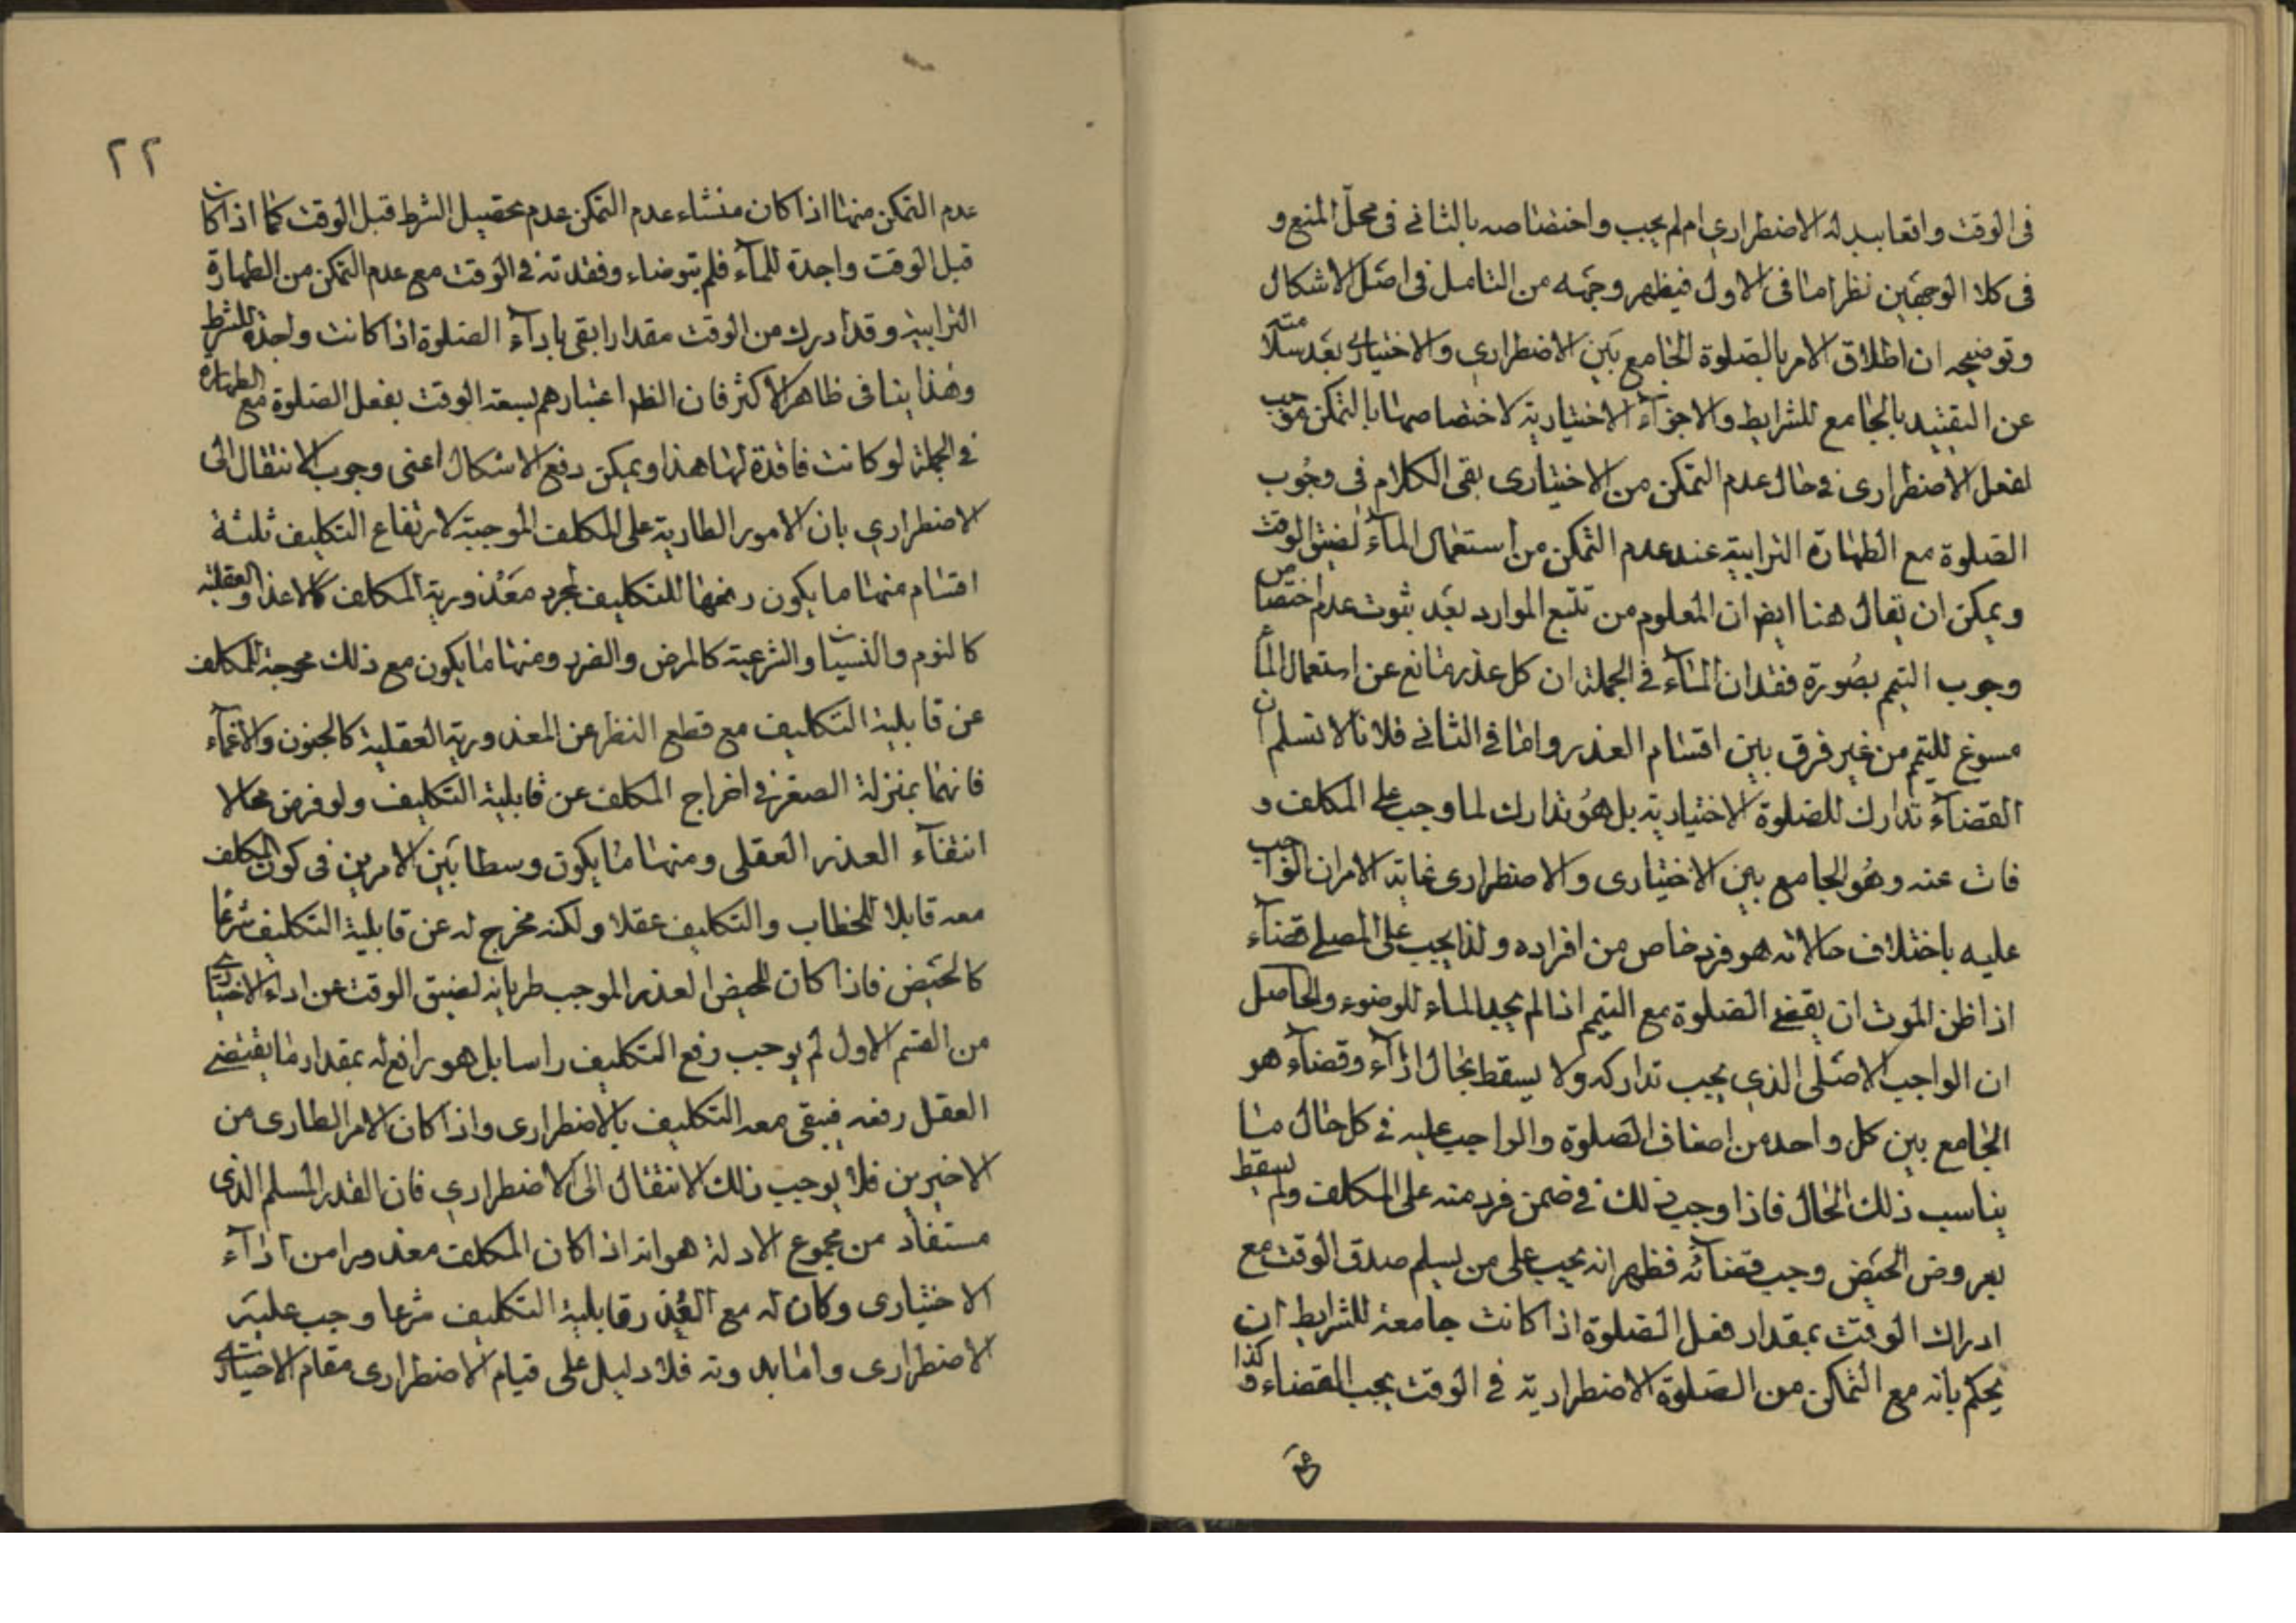 فى الوقت واتعا ببدله الاضطرارى ام لم يجب واختصاصه بالثانى فى محلّ المنع و
فى كلا الوجهين نظر امّا فى الاول فيظهر وجهه من التامل فى اصل الاشكال
وتوضيحه ان اطلاق الامر بالصلوة الجامع بين الاضطرارى والاختيارى بعد سلامته
عن التقييد بالجامع للشرايط والاجزآء الاختيارية لاختصاصها بالتمكن موجب
لفعل الاضطرارى فى حال عدم التمكن من الاختيارى بقى الكلام فى وجوب
الصلوة مع الطهارة الترابية عند عدم التمكن من استعمال المآء لضيق الوقت
ويمكن ان يقال هنا ايض ان المعلوم من تتبع الموارد بعد ثبوت عدم اختصاص
وجوب التيمم بصورة فقدان المآء فى الجملة ان كل عذر مانع عن استعمال المآء
مسوغ للتيمم من غير فرق بين اقسام العذر واما فى الثانى فلانا لا نسلم ان
القضآء تدارك للصلوة الاختيارية بل هو تدارك لما وجب على المكلف و
فات عنه وهو الجامع بين الاختيارى والاضطرارى غاية الامر ان الواجب
عليه باختلاف حالاته هو فرد خاص من افراده ولذا يجب على المصلى قضآء
اذا ظن الموت ان يقضى الصلوة مع التيمم اذا لم يجد الماء للوضوء والحاصل
ان الواجب الاصلى الذى يجب تداركه ولا يسقط بحال ادآء وقضآء هو
الجامع بين كل واحد من اصناف الصلوة والواجب عليه فى كل حال ما
يناسب ذلك الحال فاذا وجب ذلك فى ضمن فرد منه على المكلف ولم يسقط
بعروض الحيض وجب قضآئه فظهر انه يجب على من يسلم صدق الوقت مع
ادراك الوقت بمقدار فعل الصلوة اذا كانت جامعة للشرايط ان
يحكم بانه مع التمكن من الصلوة الاضطرارية فى الوقت يجب القضاء وكذا
٢٢
عدم التمكن منها اذا كان منشاء عدم التمكن عدم تحصيل الشرط قبل الوقت كما اذا كان
قبل الوقت واجدة للمآء فلم يتوضاء وفقدته فى الوقت مع عدم التمكن من الطهارة
الترابية وقد ادرك من الوقت مقدارا بقى بادآء الصلوة اذا كانت واجدة للشرط
وهذا ينافى ظاهر الاكثر فان الظ اعتبارهم بسعة الوقت بفعل الصلوة مع الطهارة
فى الجملة لو كانت فاقدة لها هذا ويمكن دفع الاشكال اعنى وجوب الانتقال الى
الاضطرارى بان الامور الطارية على المكلف الموجبة لارتفاع التكليف ثلثة
اقسام منها ما يكون رفعها للتكليف لمجرد معذورية المكلف كالاعذار العقلية
كالنوم والنسيان والشرعية كالمرض والضرر ومنها ما يكون مع ذلك مخرجة للمكلف
عن قابلية التكليف مع قطع النظر عن المعذورية العقلية كالجنون والاغمآء
فانهما بمنزلة الصغر فى اخراج المكلف عن قابلية التكليف ولو فرض محالا
انتفآء العذر العقلى ومنها ما يكون وسطا بين الامرين فى كون المكلف
معه قابلا للخطاب والتكليف عقلا ولكنه مخرج له عن قابلية التكليف شرعا
كالحيض فاذا كان للحيض العذر الموجب طريانه لضيق الوقت عن اداء الاختيارى
من القسم الاول لم يوجب رفع التكليف راسا بل هو رافع له بمقدار ما يقتضى
العقل رفعه فيبقى معه التكليف بالاضطرارى واذا كان الامر الطارى من
الاخيرين فلا يوجب ذلك الانتقال الى الاضطرارى فان القدر المسلم الذى
مستفاد من مجموع الادلة هو انه اذا كان المكلف معذورا من ادآء
الاختيارى وكان له مع العذر قابلية التكليف شرعا وجب عليه
الاضطرارى واما بدونه فلا دليل على قيام الاضطرارى مقام الاختيارى